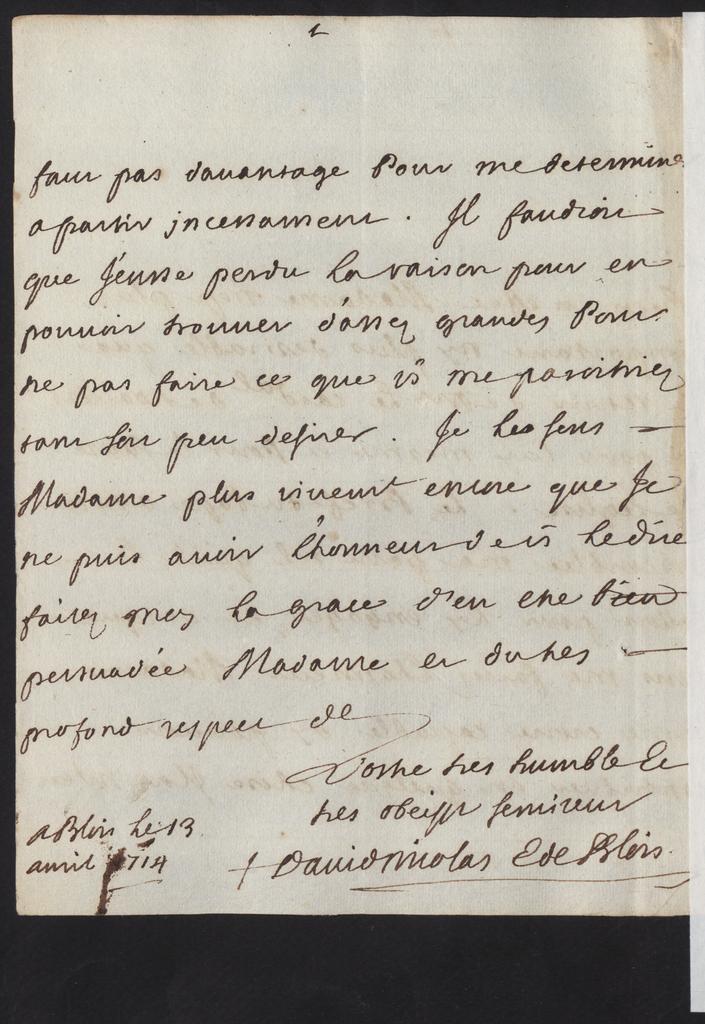 faut pas davantage Pour me determiner
a partir incessament. Il faudroit
que J'eusse perdu la raison pour en
pouvoir trouver d'assez grandes Pour
ne pas faire ce que vs me paroitriez
tant soit peu desirer. Je les sens
Madame plus vivemt encore que Je
ne puis avoir l'honneur de vs le dire
faitez moy la grace d'en etre bien
persuadée Madame et du tres
profond respect de
Vostre tres humble Et
tres obeisst serviteur
a Blois le 13
avril 1714
+ David nicolas E de Blois.